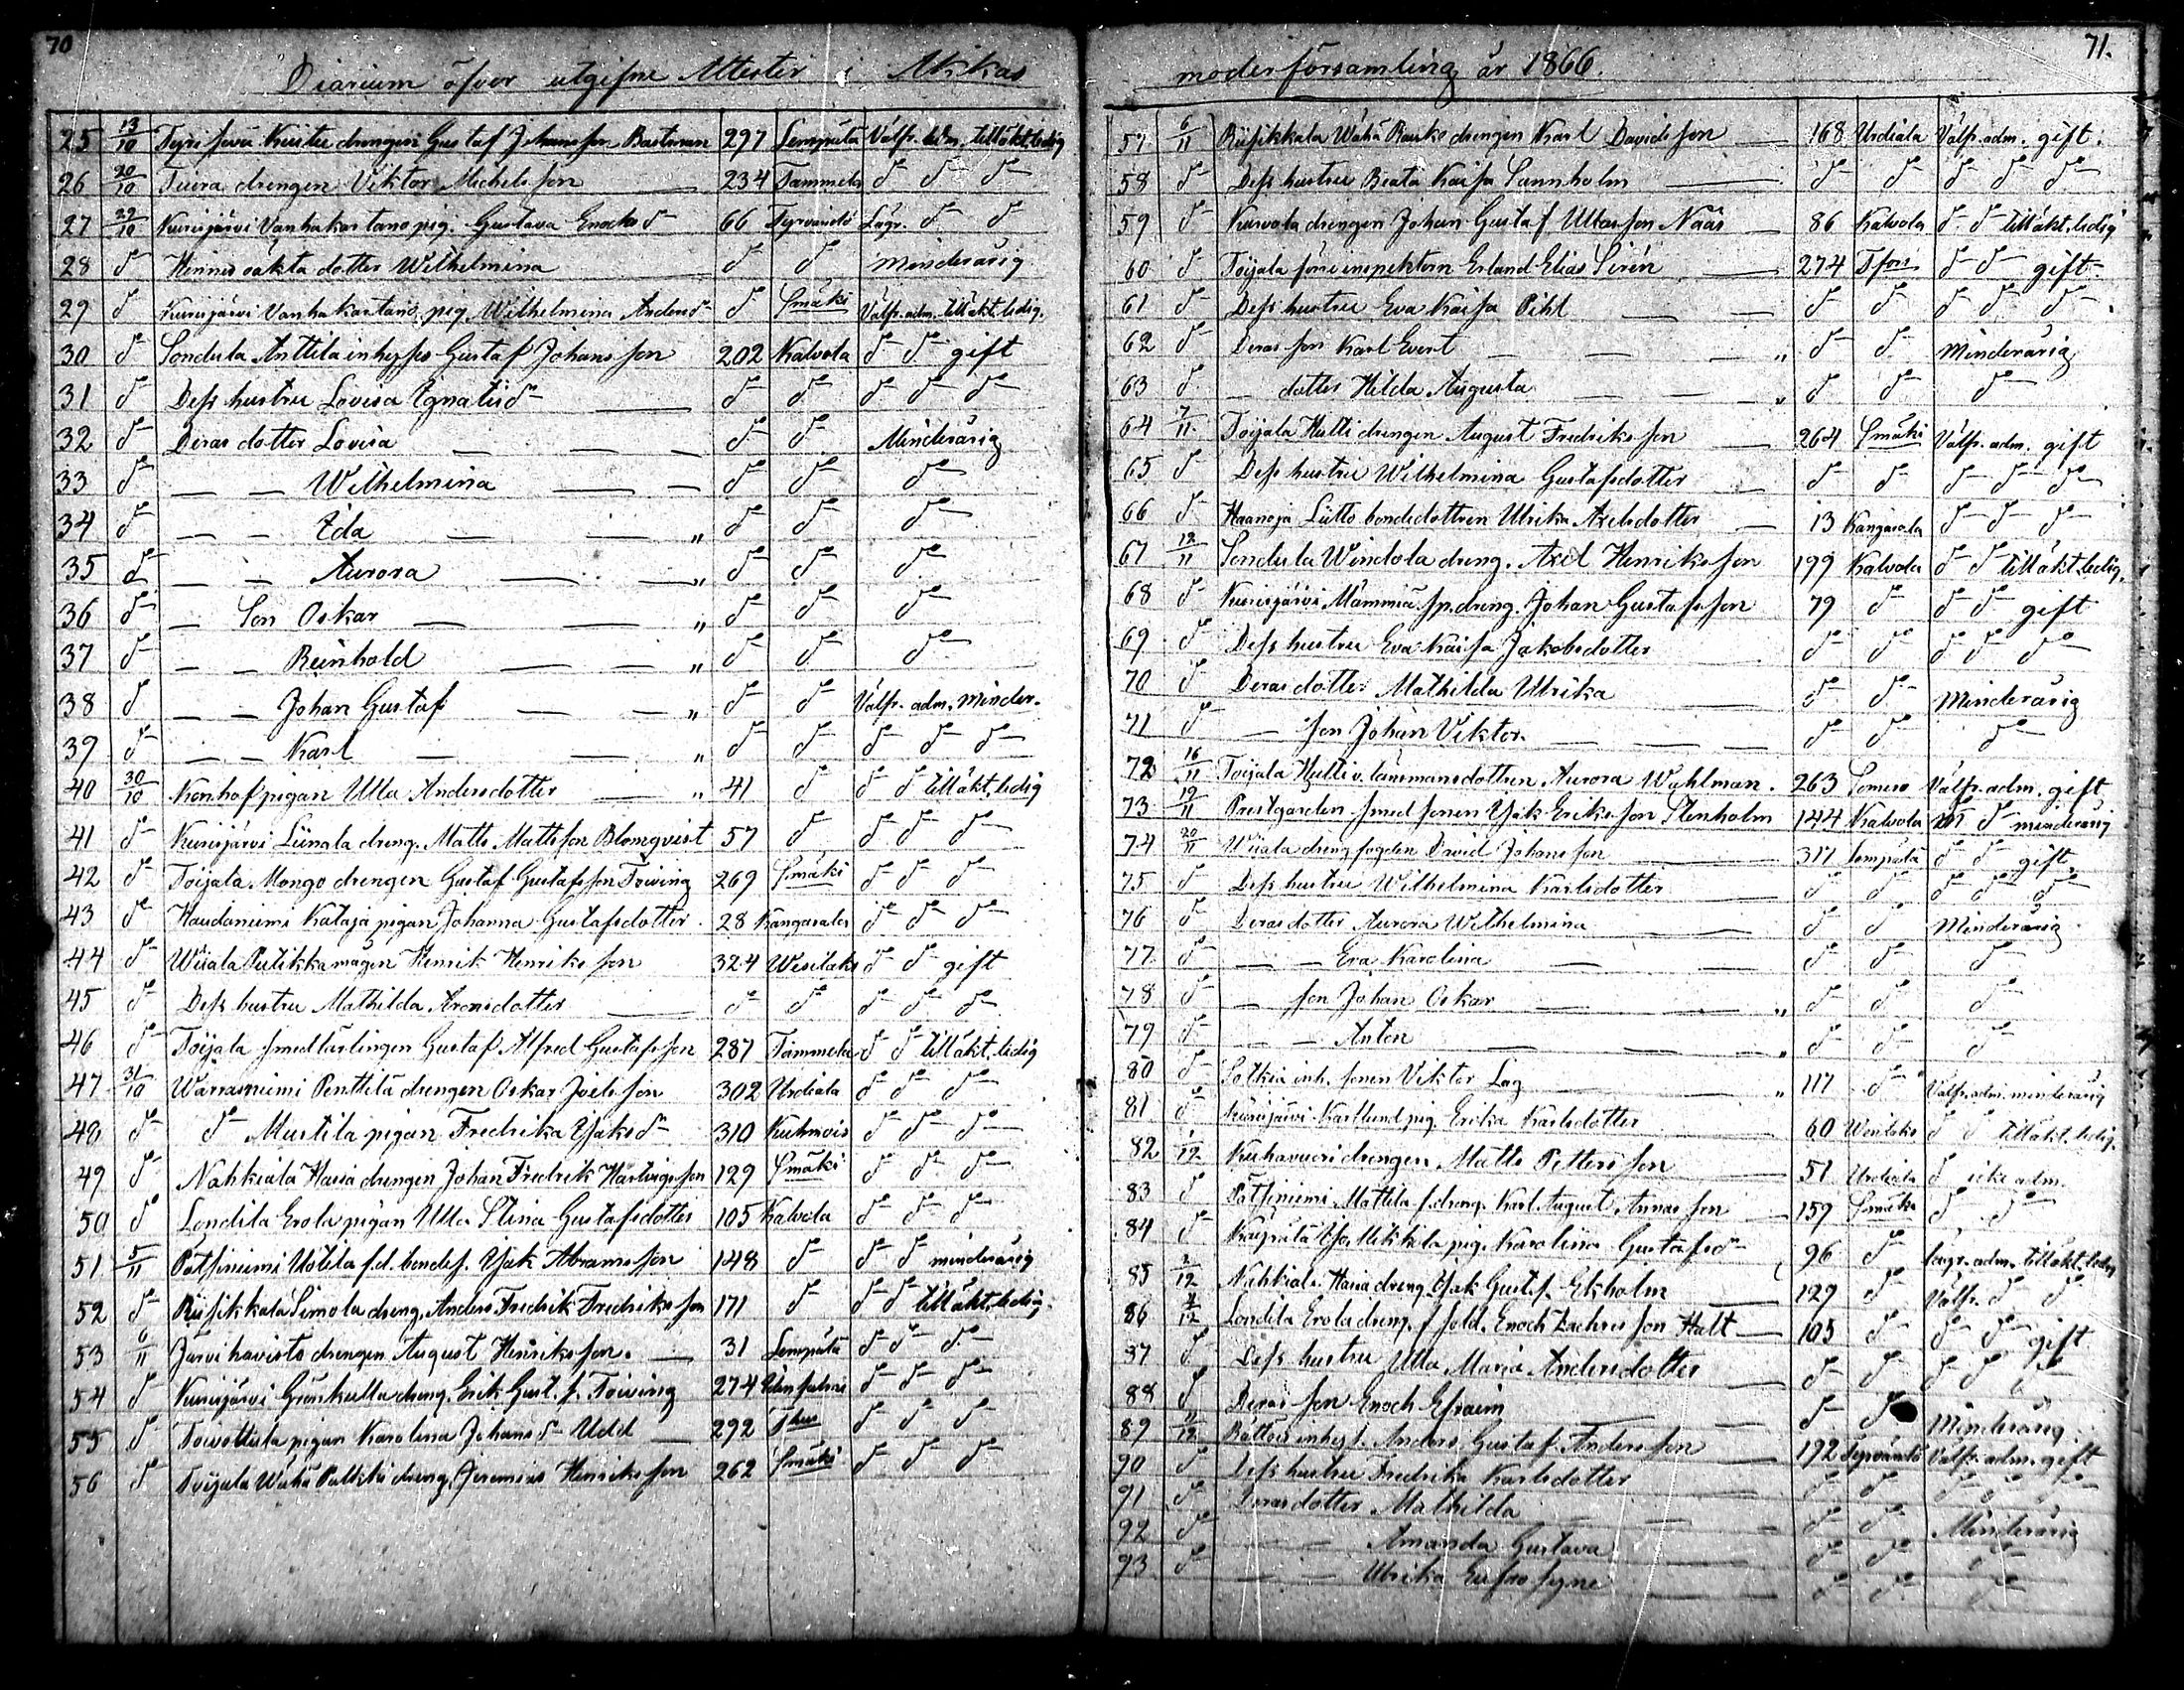 70
Diarium öfver utgifne Attester i Akkas
25 13/10 Gustaf Johansson Bastman 297 Lempäla Välfr. adm. till äkt. ledig
26 20/10 drengen Viktor Michelsson 234 Tammela d:o d:o d:o
27 29/10 Kurisjärvi Vanhakartano pig. Gustava Enochs d:r 66 Tyrvändö Lägr. d:o d:o
28 d:o Hennes oäkta dotter Wilhelmina d:o d:o Minderårig
29 d:o Kurisjärvi Vanhakartano pig. Wilhelmina Anders d:r d:o Smäki Välfr. adm. till äkt. ledig.
30 d:o Sondula Anttila inhyses Gustaf Johansson 202 Kalvola d:o d:o gift
31 d:o Dess hustru Lovisa Ignatii d:r d:o d:o d:o d:o d:o
32 d:o Deras dotter Lovisa d:o d:o Minderårig
33 d:o — — Wilhelmina d:o d:o d:o
34 d:o — — Ida „ d:o d:o d:o
35 d:o — — Aurora „ d:o d:o d:o
36 d:o — Son Oskar „ d:o d:o d:o
37 d:o — — Reinhold „ d:o d:o d:o
38 d:o — — Johan Gustaf „ d:o d:o Välfr. adm. minder.
39 d:o — — Karl „ d:o d:o d:o d:o d:o
40 30/10 Konhof pigan Ulla Andersdotter „ 41 d:o d:o d:o till äkt. ledig
41 d:o Kurisjärvi Liinala dreng. Matts Mattsson Blomqvist 57 d:o d:o d:o d:o
42 d:o Toijala Mongo drengen Gustaf Gustafsson Toiving 269 Smäki d:o d:o d:o
43 d:o Haudaniemi Kataja pigan Johanna Gustafsdotter 28 Kangasala d:o d:o d:o
44 d:o Wiiala Pulikka mågen Henrik Henriksson 324 Wesilaks d:o d:o gift
45 d:o Dess hustru Mathilda Aronsdotter d:o d:o d:o d:o d:o
46 d:o Toijala smedlärlingen Gustaf Alfred Gustafsson 287 Tammela d:o d:o till äkt. ledig
47 31/10 Warrasniemi Penttilä drengen Oskar Joelsson 302 Urdiala d:o d:o d:o
48 d:o d:o Mustila pigan Fredrika Isaks d:r 310 Kuhmois d:o d:o d:o
49 d:o Nahkiala Hasia drengen Johan Fredrik Hartvigsson 129 Smäki d:o d:o d:o
50 d:o Londila Erola pigan Ulla Stina Gustafsdotter 105 Kalvola d:o d:o d:o
51 5/11 Pätsiniemi Uotila f.d. bondes. Isak Abramsson 148 d:o d:o d:o minderårig
52 d:o Riisikkala Simola dreng. Anders Fredrik Fredriksson 171 d:o d:o d:o till äkt. ledig.
53 6/11 Järvihavisto drengen August Henriksson. 31 Lempäla d:o d:o d:o
54 d:o Kurisjärvi Grönkulla dreng. Erik Gust. s. Toiving 274 d:o d:o d:o
55 d:o pigan Karolina Johans d:r Udd 292 T:hus d:o d:o d:o
56 d:o Toijala Wähä Palkki dreng. Jeremias Henriksson 262 Smäki d:o d:o d:o
71.
moderförsamling år 1866.
57 6/11 Riisikkala Wähä Rauko drengen Karl Davidsson 168 Urdiala Välfr. adm. gift.
58 d:o Dess hustru Beata Kaisa Sannholm d:o d:o d:o d:o d:o
59 d:o Kurvola drengen Johan Gustaf Ullasson Nääs 86 Kalvola d:o d:o till äkt. ledig
60 d:o Toijala förre inspektorn Erland Elias Sirén 274 T:fors d:o d:o gift
61 d:o Dess hustru Eva Kaisa Pihl d:o d:o d:o d:o d:o
62 d:o Deras son Karl Evert „ d:o d:o Minderårig
63 d:o — dotter Hilda Augusta „ d:o d:o d:o
64 7/11 Toijala Hulli drengen August Fredriksson 264 Smäki Välfr. adm. gift
65 d:o Dess hustru Wilhelmina Gustafsdotter d:o d:o d:o d:o d:o
66 d:o Haanoja Liitto bondedottren Ulrika Axelsdotter 13 Kangasala d:o d:o d:o
67 12/11 Sondula Windola dreng. Axel Henriksson 199 Kalvola d:o d:o till äkt. ledig.
68 d:o Kurisjärvi Mämmiä sp.dreng. Johan Gustafsson 79 d:o d:o d:o gift
69 d:o Dess hustru Eva Kaisa Jakobsdotter d:o d:o d:o d:o d:o
70 d:o Deras dotter Mathilda Ulrika d:o d:o Minderårig
71 d:o — son Johan Viktor. d:o d:o d:o
72 16/11 Toijala Hulli v. länsmansdottren Aurora Wahlman. 263 Somero Välfr. adm. gift
73 19/11 Prestgården smedsonen Isak Eriksson Stenholm 144 Kalvola d:o d:o minderårig
74 20/11 Wiiala drengfogden David Johansson 317 Lempäla d:o d:o gift
75 d:o Dess hustru Wilhelmina Karlsdotter d:o d:o d:o d:o d:o
76 d:o Deras dotter Aurora Wilhelmina d:o d:o Minderårig
77 d:o — — Eva Karolina d:o d:o d:o
78 d:o — son Johan Oskar „ d:o d:o d:o
79 d:o — — Anton „ d:o d:o d:o
80 d:o Sotkia inh. sonen Viktor Lag „ 117 d:o Välfr. adm. minderårig
81 d:o Kurisjärvi Karllund pig. Erika Karlsdotter 60 Wesilaks d:o d:o till äkt. ledig.
82 1/12 Kuhavuori drengen Matts Pettersson 51 Urdiala d:o icke adm.
83 d:o Pätsiniemi Mattila s.dreng. Karl August Annasson 159 Smäki d:o d:o
84 d:o Kärpälä Iso Mikkola pig. Karolina Gustafs d:r 96 d:o Lägr. adm. till äkt. ledig
85 2/12 Nahkiala Hasia dreng. Isak Gustaf Ekholm 129 d:o Välfr. d:o d:o
86 4/12 Londila Erola dreng. f. sold. Enoch Zachrisson Halt 105 d:o d:o d:o gift
87 d:o Dess hustru Ulla Maria Andersdotter d:o d:o d:o d:o d:o
88 d:o Deras son Enoch Efraim d:o d:o Minderårig.
89 11/12 inhys. Anders Gustaf Andersson 192 Tyrväntö Välfr. adm. gift
90 d:o Dess hustru Fredrika Karlsdotter d:o d:o d:o d:o d:o
91 d:o Deras dotter Mathilda d:o d:o Minderårig
92 d:o — — Amanda Gustava d:o d:o d:o
93 d:o — — Ulrika Eufrosyne d:o d:o d:o